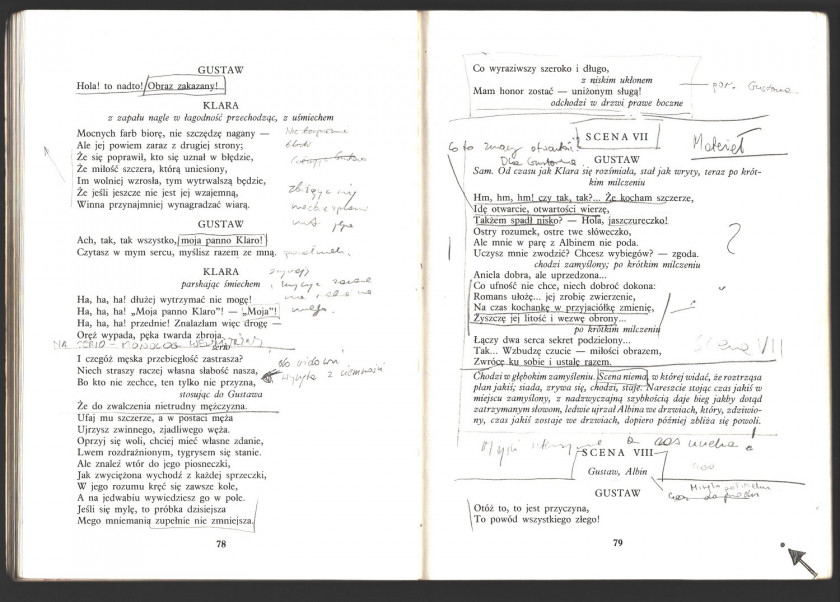 GUSTAW
Hola! to nadto! Obraz zakazany!
KLARA
z zapału nagle w łagodność przechodząc, z uśmiechem
Mocnych farb biorę, nie szczędzę nagany —
Ale jej powiem zaraz z drugiej strony;
Że się poprawił, kto się uznał w błędzie,
Że miłość szczera, którą uniesiony,
Im wolniej wzrosła, tym wytrwalszą będzie,
Że jeśli jeszcze nie jest jej wzajemną,
Winna przynajmniej wynagradzać wiarą.
GUSTAW
Ach, tak, tak wszystko, moja panno Klaro!
Czytasz w mym sercu, myślisz razem ze mną.
KLARA
parskając śmiechem
Ha, ha, ha! dłużej wytrzymać nie mogę!
Ha, ha, ha! „Moja panno Klaro”! — „Moja”!
Ha, ha, ha! przednie! Znalazłam więc drogę —
Oręż wypada, pęka twarda zbroja.
serio
NA SERIO - MONOLOG
I czegóż męska przebiegłość zastrasza?
Niech straszy raczej własna słabość nasza,
Bo kto nie zechce, ten tylko nie przyzna,
do widowni
z ciemności
stosując do Gustawa
Że do zwalczenia nietrudny mężczyzna.
Ufaj mu szczerze, a w postaci męża
Ujrzysz zwinnego, zjadliwego węża.
Oprzyj się woli, chciej mieć własne zdanie,
Lwem rozdrażnionym, tygrysem się stanie.
Ale znaleź wtór do jego piosneczki,
Jak zwyciężona wychodź z każdej sprzeczki,
W jego rozumu kręć się zawsze kole,
A na jedwabiu wywiedziesz go w pole.
Jeśli się mylę, to próbka dzisiejsza
Mego mniemania zupełnie nie zmniejsza.
78
Co wyraziwszy szeroko i długo,
z niskim ukłonem
Mam honor zostać — uniżonym sługą!
odchodzi w drzwi prawe boczne
por. Gustawa.
SCENA VII
Co to znaczy otwartość
Dla Gustawa
GUSTAW
Sam. Od czasu jak Klara się rozśmiała, stał jak wryty, teraz po krót-
kim milczeniu
Hm, hm, hm! czy tak, tak?... Że kocham szczerze,
Idę otwarcie, otwartości wierzę,
Takżem spadł nisko? — Hola, jaszczureczko!
Ostry rozumek, ostre twe słóweczko,
Ale mnie w parę z Albinem nie poda.
Uczysz mnie zwodzić? Chcesz wybiegów? — zgoda.
chodzi zamyślony; po krótkim milczeniu
Aniela dobra, ale uprzedzona...
Co ufność nie chce, niech dobroć dokona:
Romans ułożę... jej zrobię zwierzenie,
Na czas kochankę w przyjaciółkę zmienię,
Zyszczę jej litość i wezwę obrony...
po krótkim milczeniu
Łączy dwa serca sekret podzielony...
Tak... Wzbudzę czucie — miłości obrazem,
Zwrócę ku sobie i ustalę razem.
Scena VII
Chodzi w głębokim zamyśleniu. Scena niema, w której widać, że roztrząsa
plan jakiś; siada, zrywa się, chodzi, staje. Nareszcie stojąc czas jakiś w
miejscu zamyślony, z nadzwyczajną szybkością daje bieg jakby dotąd
zatrzymanym słowom, ledwie ujrzał Albina we drzwiach, który, zdziwio-
ny, czas jakiś zostaje we drzwiach, dopiero później zbliża się powoli.
SCENA VIII
Gustaw, Albin
GUSTAW
Otóż to, to jest przyczyna,
To powód wszystkiego złego!
79